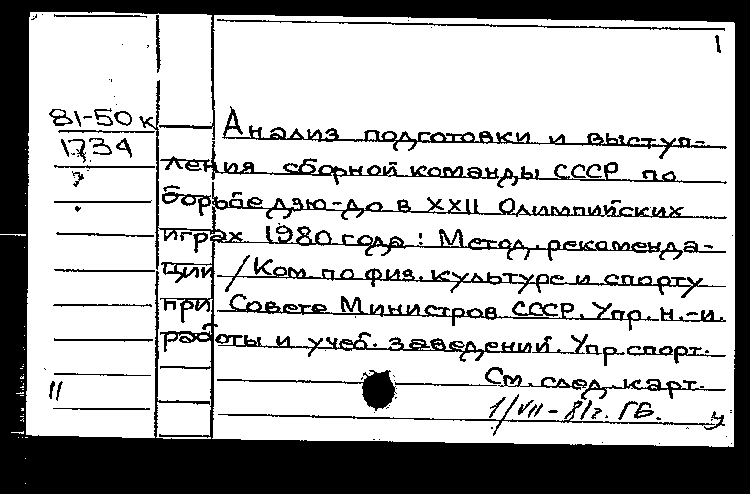 1
81-50 к
1734
?
Анализ подготовки и выступ-
ления сборной команды СССР по
борьбе дзю-до в XXII Олимпийских
играх 1980 года: Метод. рекоменда-
ции / Ком. по физ. культуре и спорту
при Совете Министров СССР. Упр. н.-и.
работы и учеб. заведений. Упр. спорт.
См. след. карт.
11
1/VII-81г. ГБ.